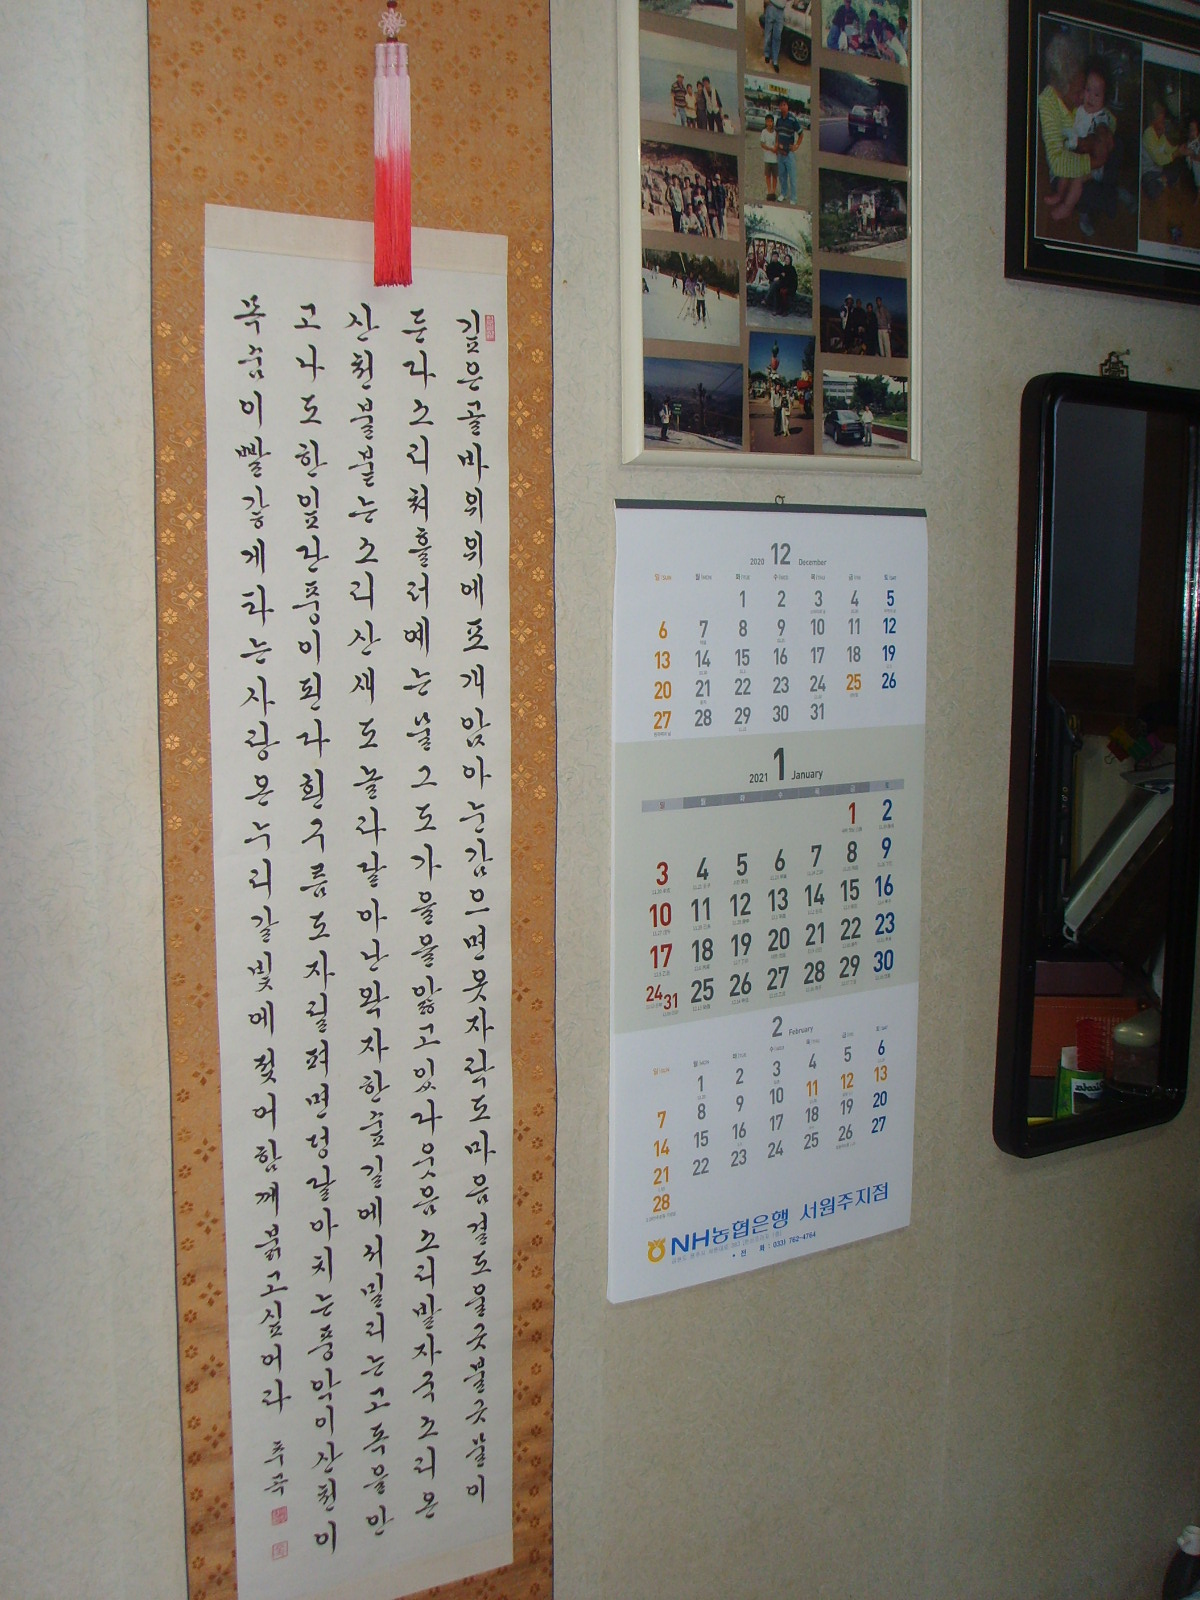 깊은골바위위에포개앉아눈감으면옷자락도마음결도울긋불긋물이
든다소리쳐흘러예는물그도가을을앓고있다웃음소리발자국소리온
산천불붙는소리산새도놀라달아난왁자한숲길에서밀리는고독을안
고나도한잎단풍이된다흰구름도자릴펴면덩달아치는풍악이산천이
목숨이빨갛게타는사랑은누리갈빛에젖어함께붉고싶어라
2020 12 December
일/SUN 월/MON 화/TUE 수/WED 목/THU 금/FRI 토/SAT
1 2 3 4 5
6 7 8 9 10 11 12
13 14 15 16 17 18 19
20 21 22 23 24 25 26
27 28 29 30 31
2021 1 January
일 월 화 수 목 금 토
1 2
3 4 5 6 7 8 9
10 11 12 13 14 15 16
17 18 19 20 21 22 23
24 31 25 26 27 28 29 30
2 February
일/SUN 월/MON 화/TUE 수/WED 목/THU 금/FRI 토/SAT
1 2 3 4 5 6
7 8 9 10 11 12 13
14 15 16 17 18 19 20
21 22 23 24 25 26 27
28
NH농협은행 서원주지점
• 전 화 : 033) 762-4764